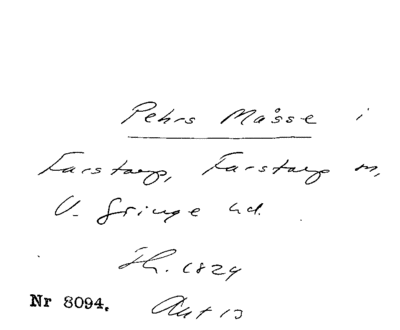 Pehrs Måsse i
Farstorp, Farstorp sn,
V. Göinge hd.
Th. 1824
Nr 8094. Akt 13